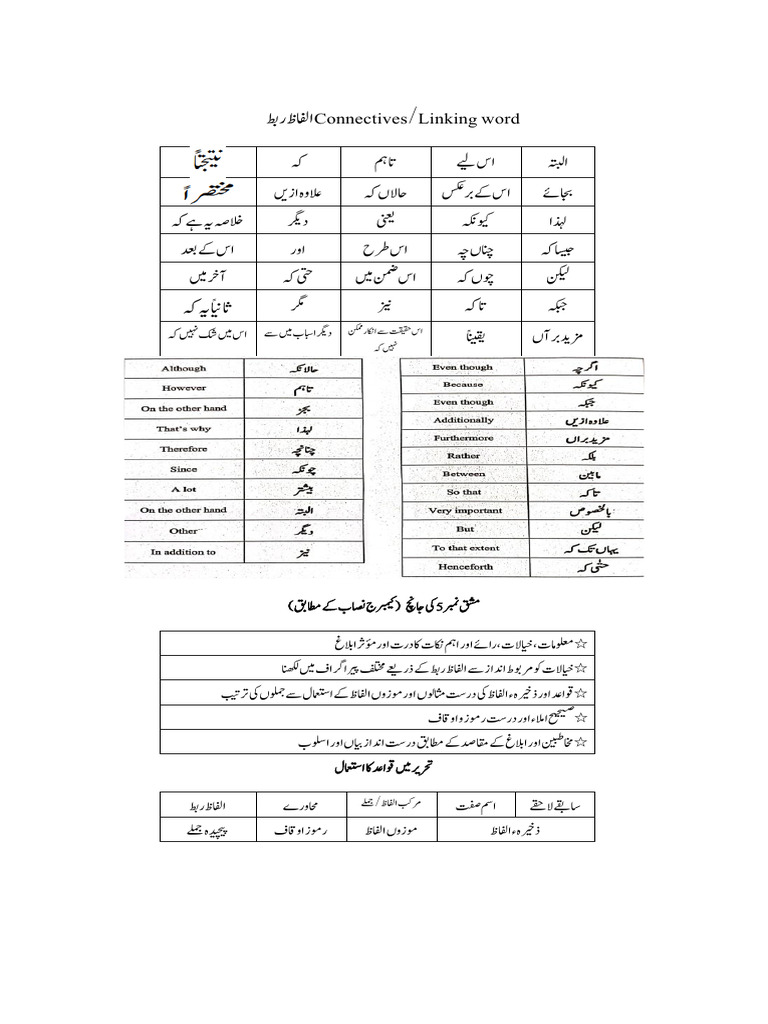 الفاظ ربط Connectives/Linking word
البتہ اس لیے تاہم کہ نتیجتاً
بجائے اس کے برعکس حالاں کہ علاوہ ازیں مختصراً
لہذا کیونکہ یعنی دیگر خلاصہ یہ ہے کہ
جیسا کہ چناں چہ اس طرح اور اس کے بعد
لیکن چوں کہ اس ضمن میں حتی کہ آخر میں
جبکہ تاکہ نیز مگر ثانیاً یہ کہ
مزید برآں یقیناً اس حقیقت سے انکار ممکن نہیں کہ دیگر اسباب میں سے اس میں شک نہیں کہ
Although حالانکہ
However تاہم
On the other hand بجز
That's why لہذا
Therefore چنانچہ
Since چونکہ
A lot بیشتر
On the other hand البتہ
Other دیگر
In addition to نیز
Even though اگرچہ
Because کیونکہ
Even though جبکہ
Additionally علاوہ ازیں
Furthermore مزید براں
Rather بلکہ
Between مابین
So that تاکہ
Very important بالخصوص
But لیکن
To that extent یہاں تک کہ
Henceforth حتٰی کہ
مشق نمبر 5 کی جانچ (کیمبرج نصاب کے مطابق)
☆ معلومات، خیالات، رائے اور اہم نکات کا درست اور مؤثر ابلاغ
☆ خیالات کو مربوط انداز سے الفاظ ربط کے ذریعے مختلف پیراگراف میں لکھنا
☆ قواعد اور ذخیرہء الفاظ کی درست مثالوں اور موزوں الفاظ کے استعمال سے جملوں کی ترتیب
☆ صحیح املاء اور درست رموز و اوقاف
☆ مخاطبین اور ابلاغ کے مقاصد کے مطابق درست انداز بیاں اور اسلوب
تحریر میں قواعد کا استعمال
سابقے لاحقے اسم صفت مرکب الفاظ/جملے محاورے الفاظ ربط
ذخیرہء الفاظ موزوں الفاظ رموز اوقاف پیچیدہ جملے